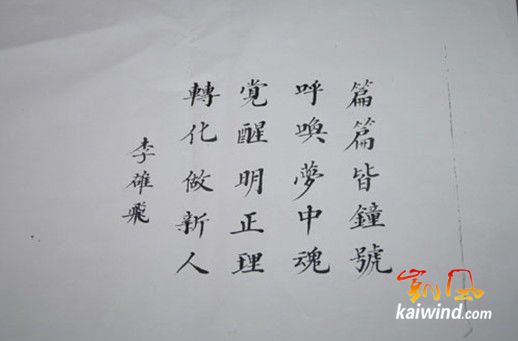 篇篇皆鐘號
呼喚夢中魂
覚醒明正理
轉化做新人
李雄飛
凯风
kaiwind.com